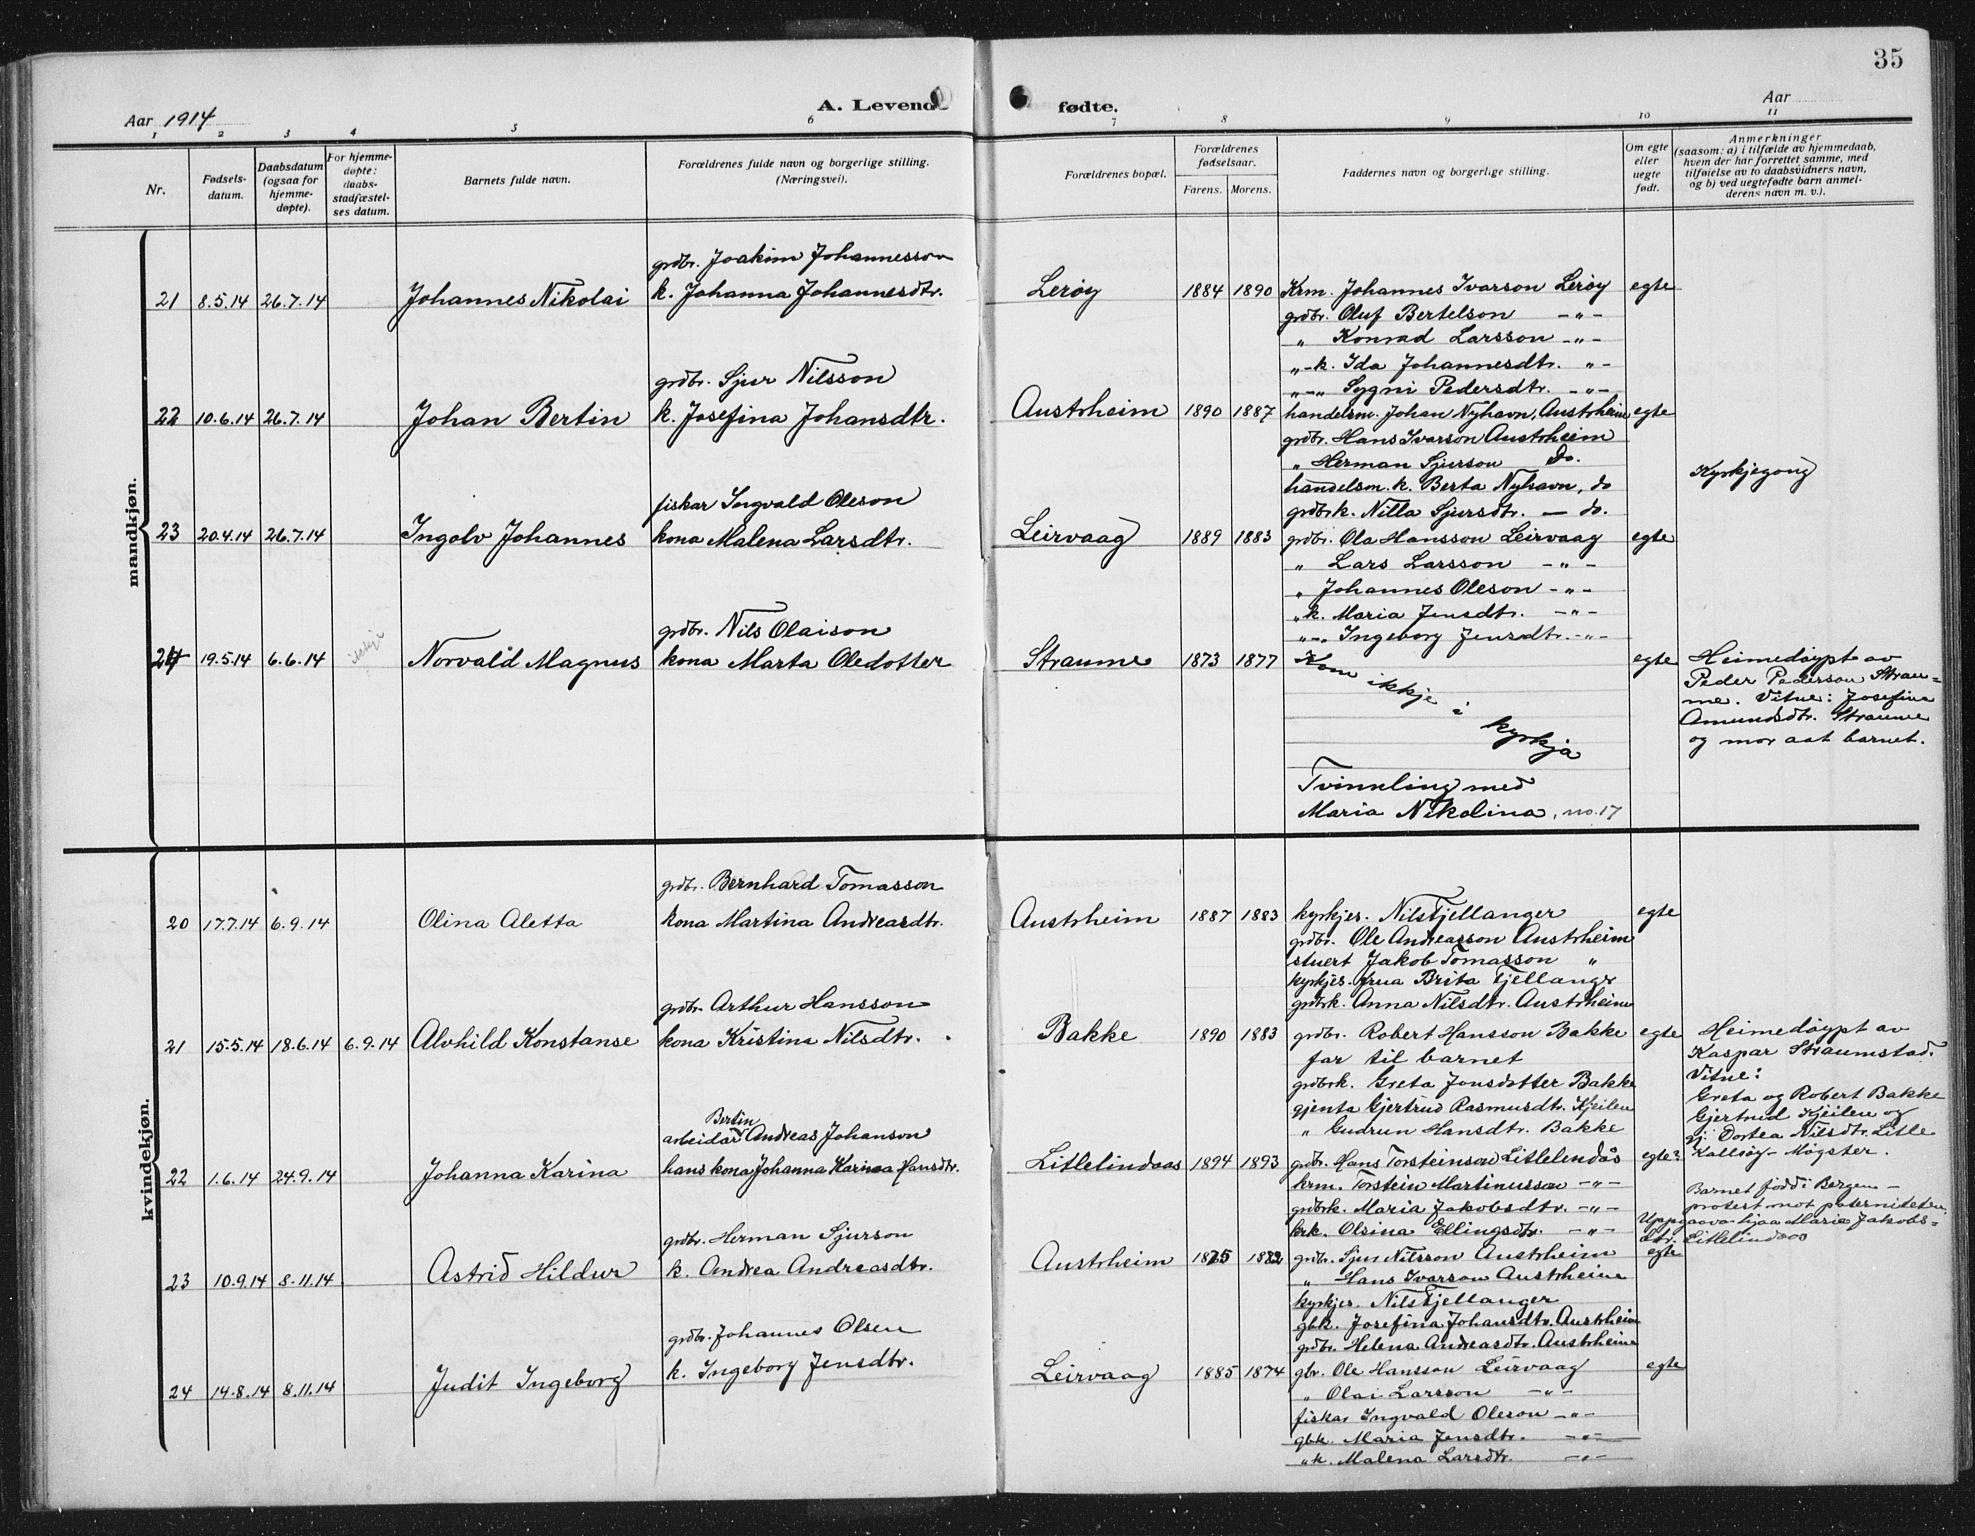 35
Aar 1914
A. Levende
fødte.
Aar
1 2 3 4 5 6 7 8 9 10 11
Nr.
Fødsels-
datum.
Daabsdatum
(ogsaa for
hjemme-
døpte).
For hjemme-
døpte:
daabs-
stadfæstel-
ses datum.
Barnets fulde navn.
Forældrenes fulde navn og borgerlige stilling.
(Næringsvei).
Forældrenes bopæl.
Forældrenes
fødselsaar.
Farens. Morens.
Faddernes navn og borgerlige stilling.
Om egte
eller
uegte
født.
Anmerkninger
(saasom: a) i tilfælde av hjemmedaab,
hvem der har forrettet samme, med
tilføielse av to daabsvidners navn,
og b) ved uegtefødte barn anmel-
derens navn m. v.).
mandkjøn.
grdbr. Joakim Johannesson
21 8.5.14 26.7.14 Johannes Nikolai k. Johanna Johannesdtr. Lerøy 1884 1890 Krm. Johannes Ivarson Lerøy egte
grdbr. Oluf Bertelson -"-
" Konrad Larsson -"-
"-k. Ida Johannesdtr. "-
"-"- Sygni Pedersdtr. -"-
grdbr. Sjur Nilsson
22 10.6.14 26.7.14 Johan Bertin k. Josefina Johansdtr. Austrheim 1890 1887 handelsm. Johan Nyhavn, Austrheim egte
grdbr. Hans Ivarson Austrheim
" Herman Sjurson do.
handelsm. k. Berta Nyhavn, do
grdbrk. Nilla Sjursdtr. — do.
Kyrkjegong
fiskar Ingvald Oleson
23 20.4.14 26.7.14 Ingolv Johannes kona Malena Larsdtr. Leirvaag 1889 1883 grdbr. Ola Hansson Leirvaag egte
" Lars Larsson -"-
" Johannes Oleson -"-
"k. Maria Jensdtr. -"-
"-"- Ingeborg Jensdtr. -"-
grdbr. Nils Olaison
24 19.5.14 6.6.14 Norvald Magnus kona Marta Oledotter Straume 1873 1877 Kom ikkje i kyrkja egte
Heimedøypt av
Peder Pederson Strau-
me. Vitne: Josefine
Amundsdtr. Straume
og mor aat barnet.
Tvinnling med
Maria Nikolina, no. 17
kvindekjøn.
grdbr. Bernhard Tomasson
20 17.7.14 6.9.14 Olina Aletta kona Martina Andreasdtr. Austrheim 1887 1883 kyrkjes. Nils Fjellanger egte
grdbr. Ole Andreasson Austrheim
stuert Jakob Tomasson "
kyrkjes. frua Brita Fjellanger
grdbrk. Anna Nilsdtr. Austrheim
grdbr. Arthur Hansson
21 15.5.14 18.6.14 6.9.14 Alvhild Konstanse kona Kristina Nilsdtr. Bakke 1890 1883 grdbr. Robert Hansson Bakke egte
far til barnet
grdbrk. Greta Jonsdotter Bakke
gjenta Gjertrud Rasmusdtr. Kjeilen
" Gudrun Hansdtr. Bakke
Heimedøypt av
Kaspar Straumstad.
Vitne:
Greta og Robert Bakke
Gjertrud Kjeilen og
gj. Dortea Nilsdtr. Litle
Kallsøy - Møgster.
Bertin
arbeidar Andreas Johanson
22 1.6.14 24.9.14 Johanna Karina hans kona Johanna Karinaa Hansdtr. Litlelindaas 1894 1893 grdbr. Hans Torsteinson Litlelendås egte?
krm. Torstein Martinusson -"-
grdbrk. Maria Jakobsdtr. -"-
krk. Olsina Ellingsdtr. -"-
Barnet född i Bergen -
protest mot paterniteten.
Uppgaava hjaa Maria Jakobs-
dtr. Litlelindaas
grdbr. Herman Sjurson
23 10.9.14 8.11.14 Astrid Hildur k. Andrea Andreasdtr. Austrheim 1875 1882 grdbr. Sjur Nilsson Austrheim egte
" Hans Ivarson Austrheim
kyrkjes. Nils Fjellanger
gbk. Josefina Johansdtr. Austrheim
grdbr. Helena Andreasdtr. Austrheim
grdbr. Johannes Olsen
24 14.8.14 8.11.14 Judit Ingeborg k. Ingeborg Jensdtr. Leirvaag 1885 1874 gbr. Ole Hansson Leirvaag egte
" Olai Larsson -"-
fiskar Ingvald Oleson -"-
gbk. Maria Jensdtr. -"-
"k. Malena Larsdtr. -"-